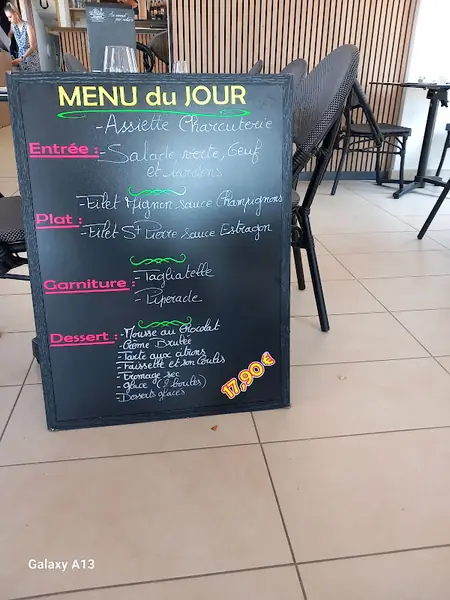 MENU du JOUR
- Assiette Charcuterie
Entrée : - Salade verte, Oeuf
et lardons
- Filet Mignon sauce Champignons
Plat :
- Filet St Pierre Sauce Estragon
Garniture : - Tagliatelle
- Piperade
Dessert : - Mousse au Chocolat
- Crème Brulée
- Tarte aux citrons
- Faisselle et son Coulis
- Fromage sec
- glace (2 boules)
- Desserts glacés
17,90 €
Galaxy A13